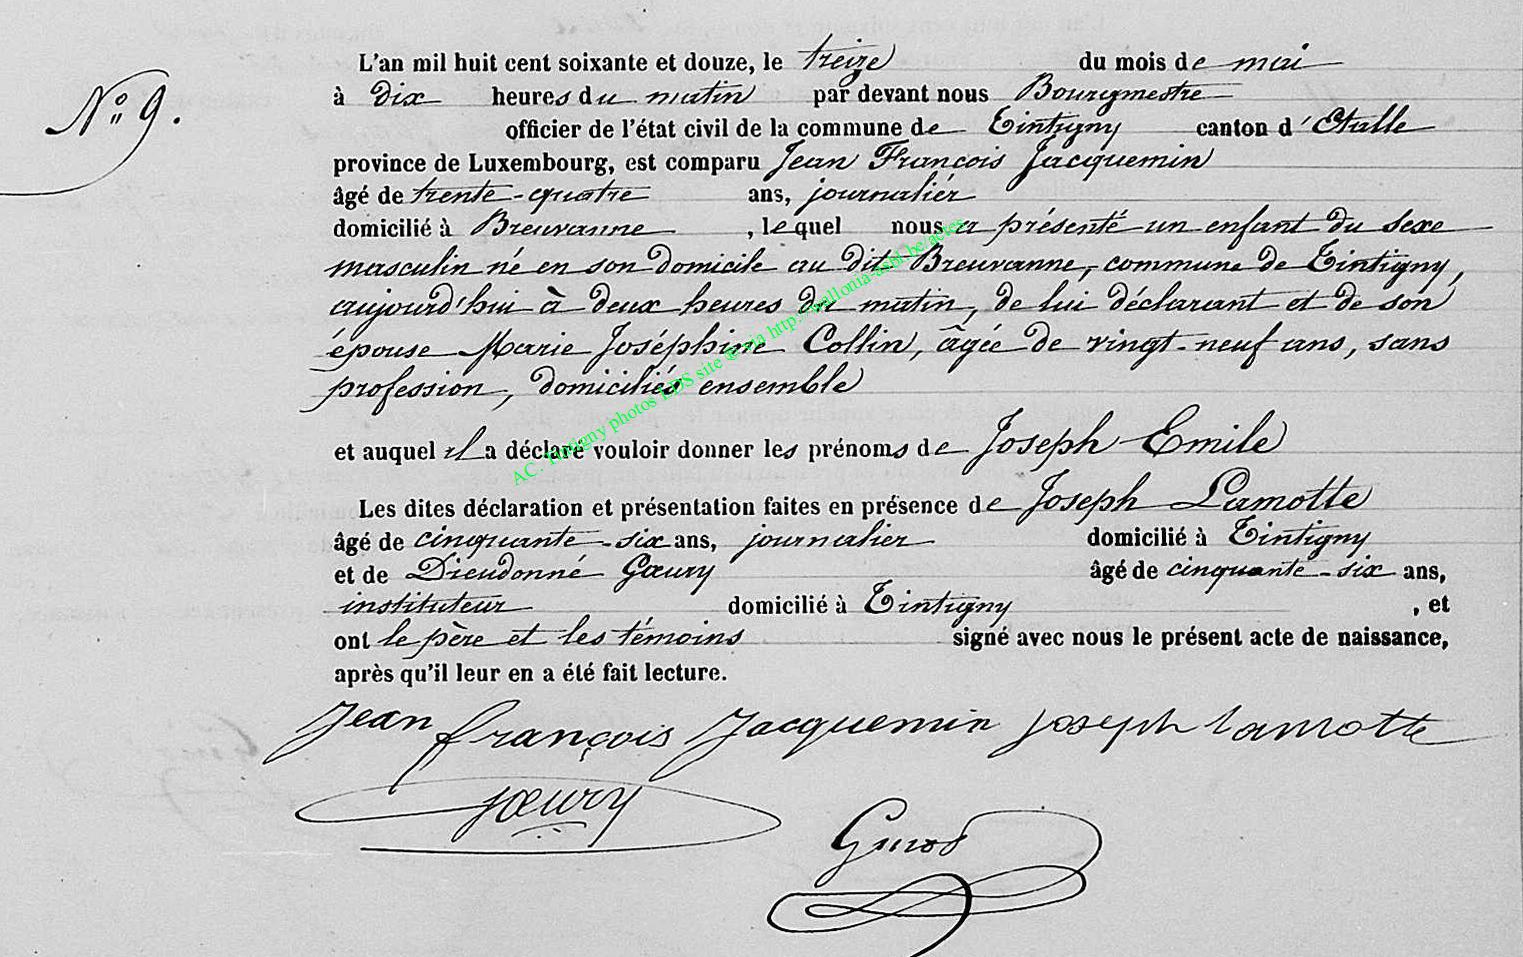 L'an mil huit cent soixante et douze, le treize du mois de mai
N° 9.
à dix heures du matin par devant nous Bourgmestre
officier de l'état civil de la commune de Tintigny canton d'Etalle
province de Luxembourg, est comparu Jean François Jacquemin
âgé de trente-quatre ans, journalier
domicilié à Breuvanne, lequel nous a présenté un enfant du sexe
masculin né en son domicile au dit Breuvanne, commune de Tintigny,
aujourd'hui à deux heures du matin, de lui déclarant et de son
épouse Marie Joséphine Collin, âgée de vingt-neuf ans, sans
profession, domiciliés ensemble
et auquel il a déclaré vouloir donner les prénoms de Joseph Emile
Les dites déclaration et présentation faites en présence de Joseph Lamotte
âgé de cinquante-six ans, journalier domicilié à Tintigny
et de Dieudonné Gœury âgé de cinquante-six ans,
instituteur domicilié à Tintigny, et
ont le père et les témoins signé avec nous le présent acte de naissance,
après qu'il leur en a été fait lecture.
Jean françois Jacquemin Joseph Lamotte
Gœury
AC. Tintigny photos LDS site via http://wallonia-asbl.be/actes